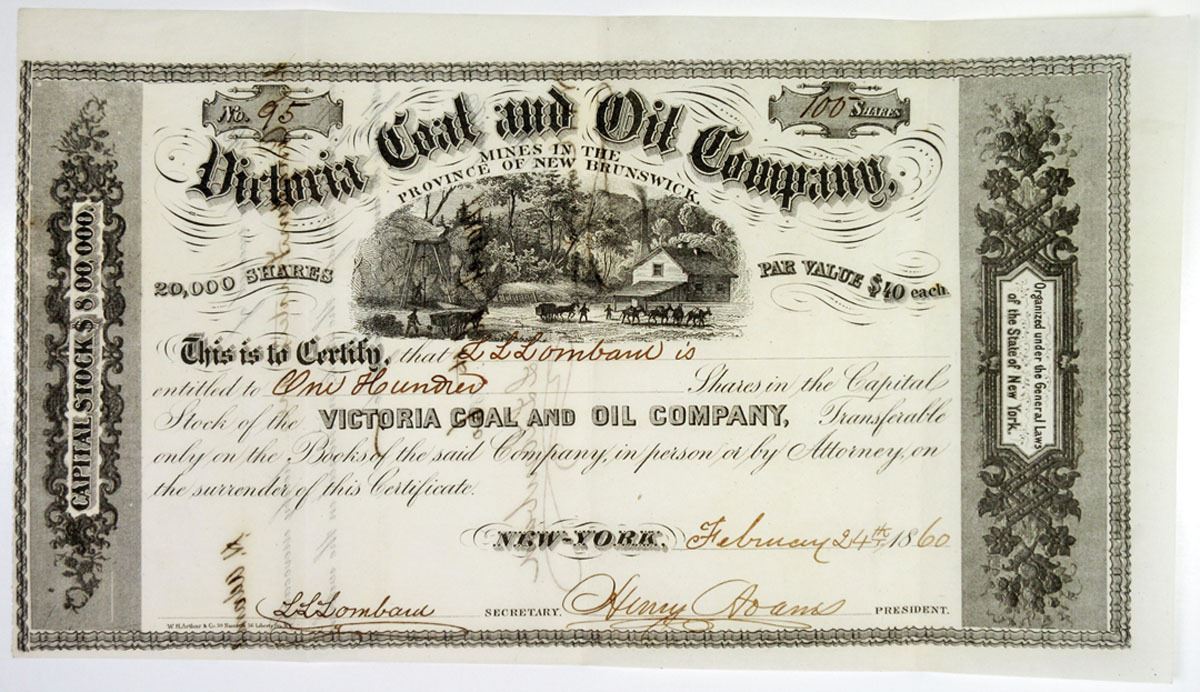 No. 95
100 SHARES
Victoria Coal and Oil Company,
MINES IN THE
PROVINCE OF NEW BRUNSWICK.
20,000 SHARES
PAR VALUE $40 each.
CAPITAL STOCK $800,000.
Organized under the General Laws
of the State of New York.
This is to Certify, that L L Lombard is
entitled to One Hundred Shares in the Capital
Stock of the VICTORIA COAL AND OIL COMPANY, Transferable
only on the Books of the said Company, in person or by Attorney, on
the surrender of this Certificate.
NEW-YORK, February 24th 1860
L L Lombard SECRETARY. Henry Adams PRESIDENT.
W.H. Arthur & Co. 39 Nassau & 56 Liberty St. N.Y.